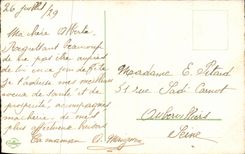 26 juillet /29
Ma chère Alberte
Regrettant beaucoup
de ne pas être auprès
de toi en ce jour de fête
je t'adresse mes meilleurs
vœux de santé et de
prospérité accompagnés
ma chérie de mes
plus affectueux baisers
ta maman
Madame E. Pitard
51 rue Sadi Carnot
Aubervilliers
Seine